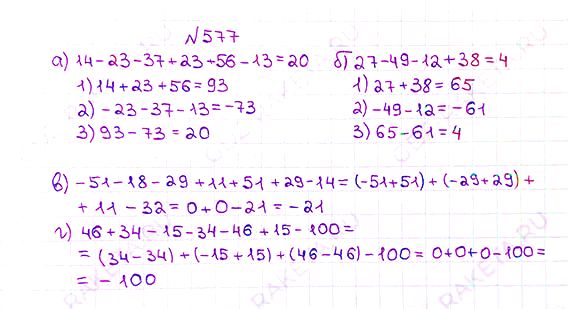 №577
а) 14-23-37+23+56-13=20
1) 14+23+56=93
2) -23-37-13=-73
3) 93-73=20
б) 27-49-12+38=4
1) 27+38=65
2) -49-12=-61
3) 65-61=4
в) -51-18-29+11+51+29-14=(-51+51)+(-29+29)+
+11-32=0+0-21=-21
г) 46+34-15-34-46+15-100=
=(34-34)+(-15+15)+(46-46)-100=0+0+0-100=
=-100